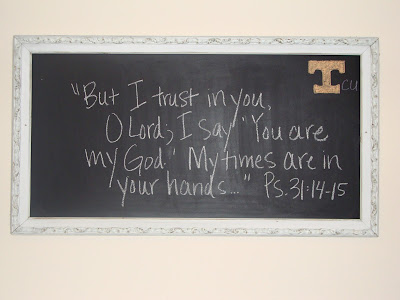 T CU
"But I trust in you,
O Lord; I say "You are
my God." My times are in
your hands..." Ps. 31:14-15